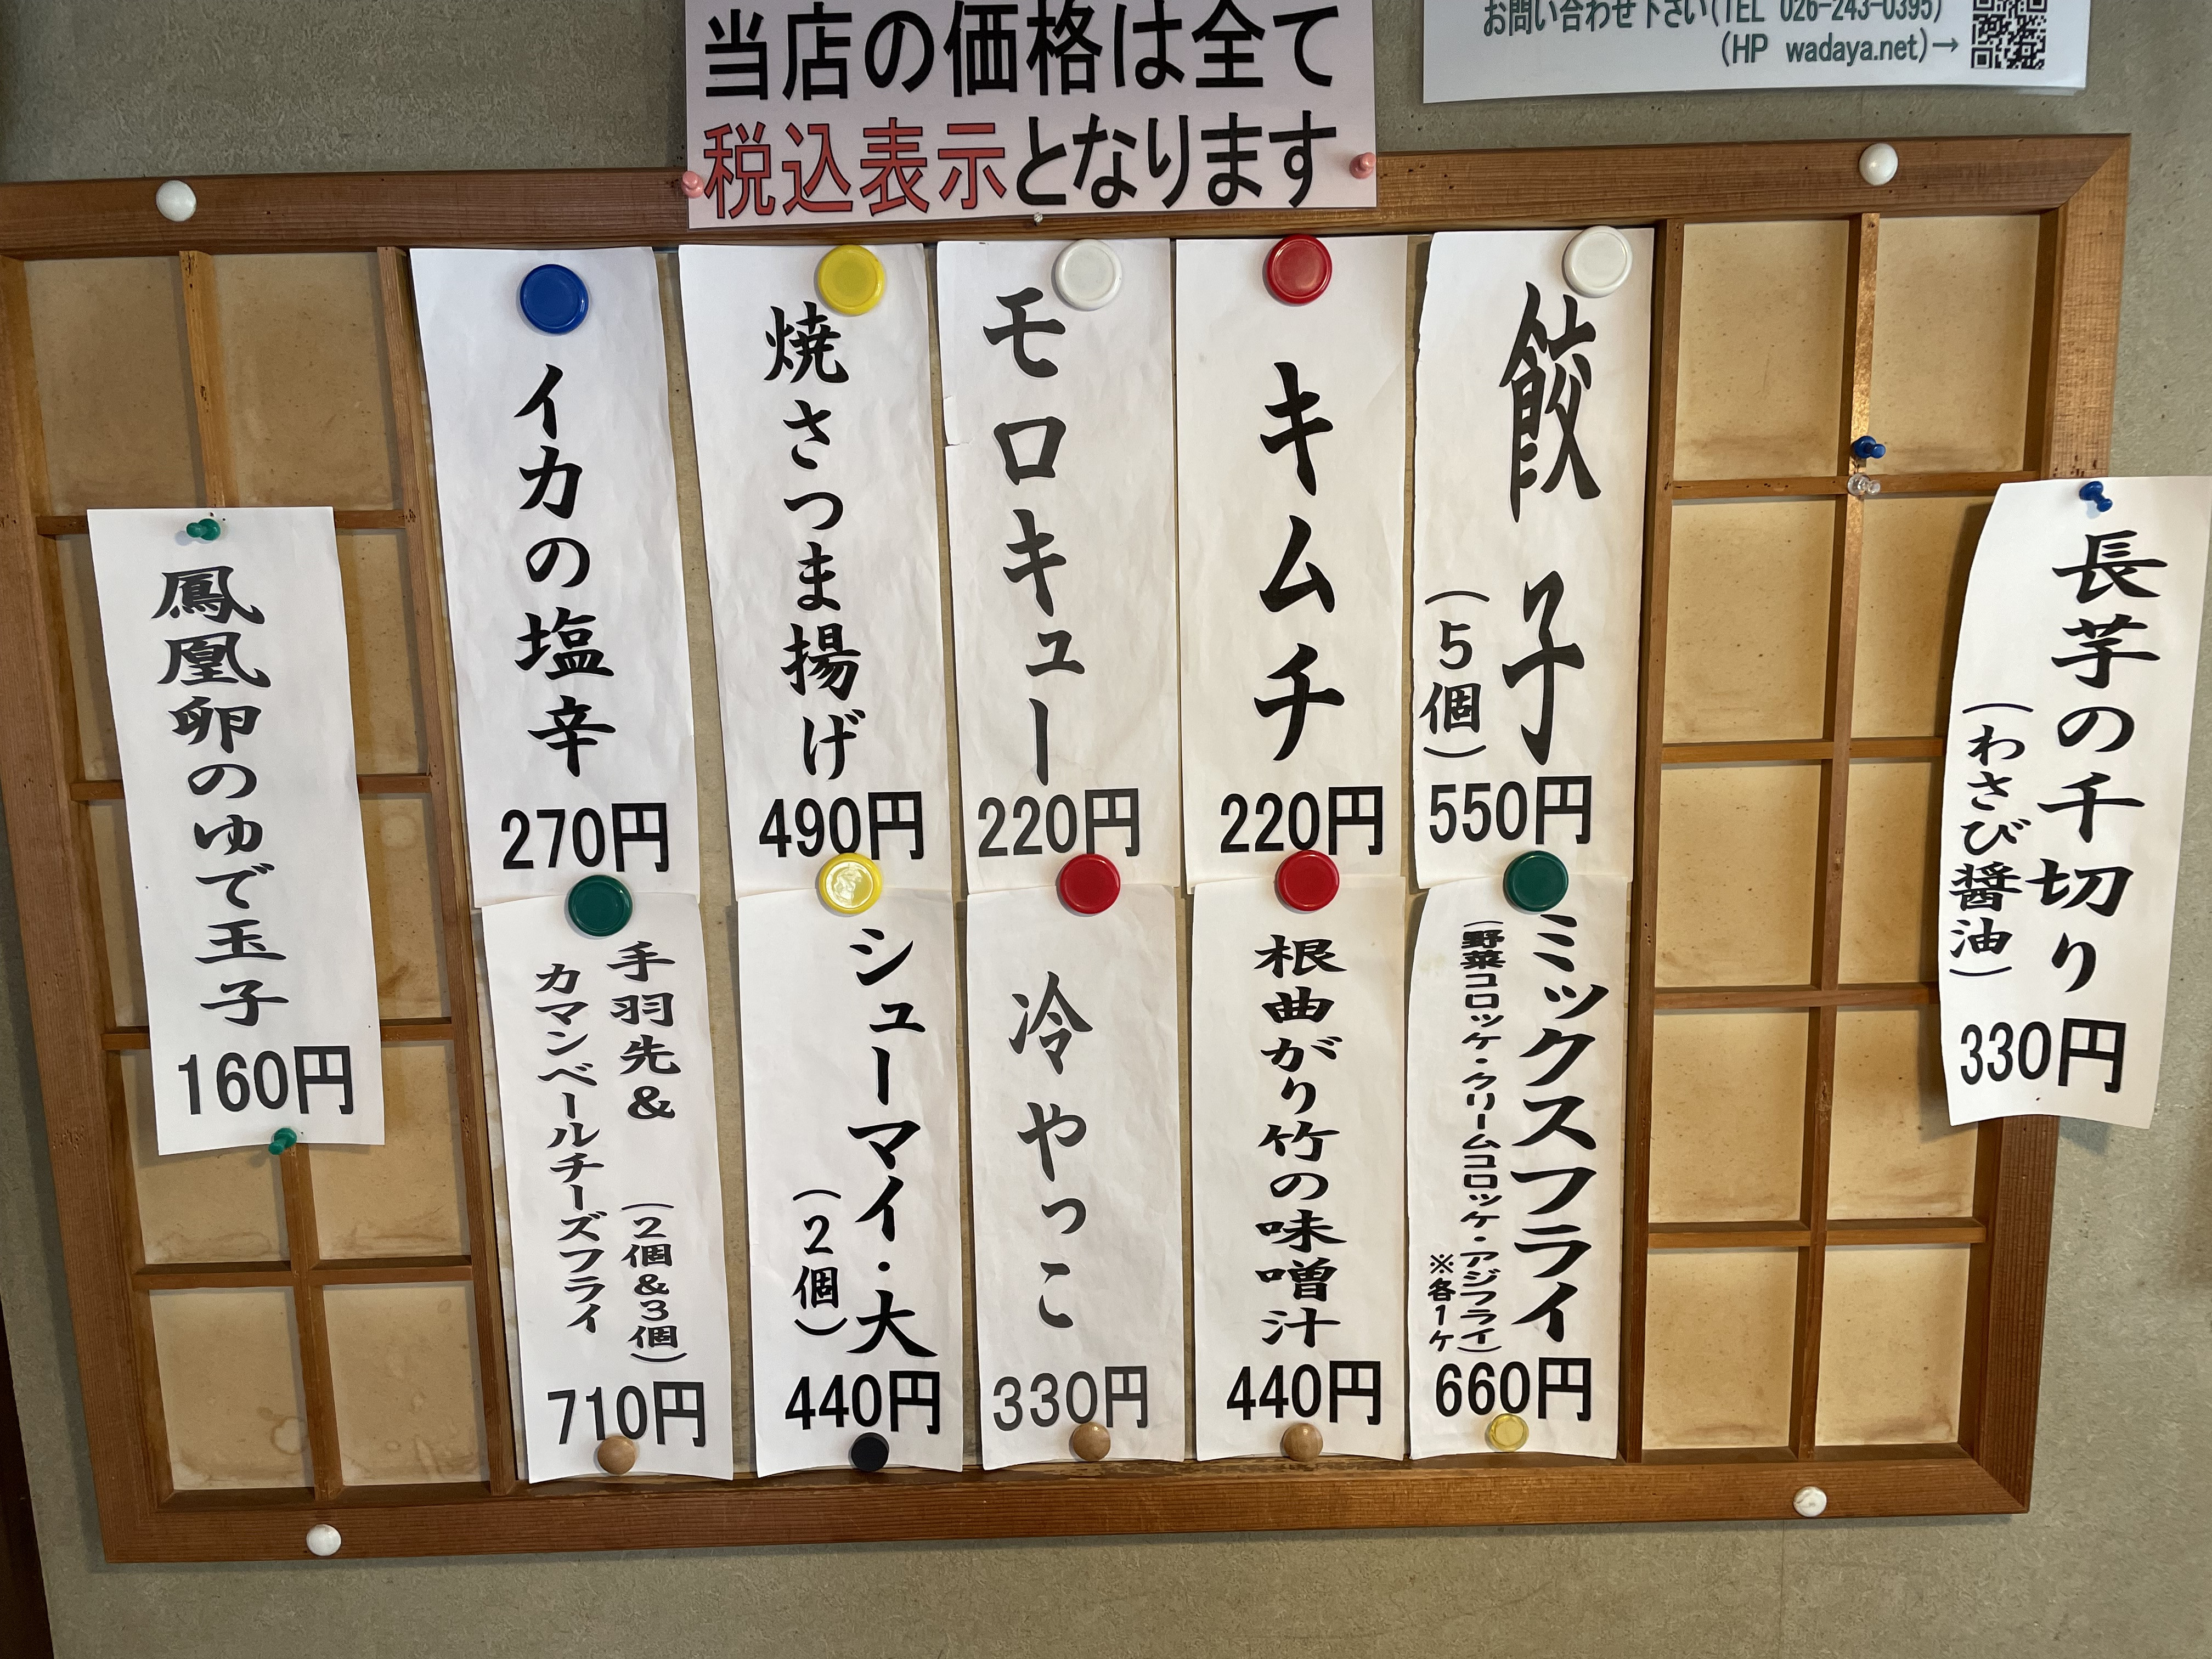 当店の価格は全て
税込表示となります
お問い合わせ下さい(TEL 026-243-0395)
(HP wadaya.net)→
長芋の千切り
(わさび醤油)
330円
餃子
(5個)
550円
キムチ
220円
モロキュー
220円
焼さつま揚げ
490円
イカの塩辛
270円
鳳凰卵のゆで玉子
160円
ミックスフライ
(野菜コロッケ・クリームコロッケ・アジフライ)
※各1ケ
660円
根曲がり竹の味噌汁
440円
冷やっこ
330円
シューマイ・大
(2個)
440円
手羽先& (2個&3個)
カマンベールチーズフライ
710円